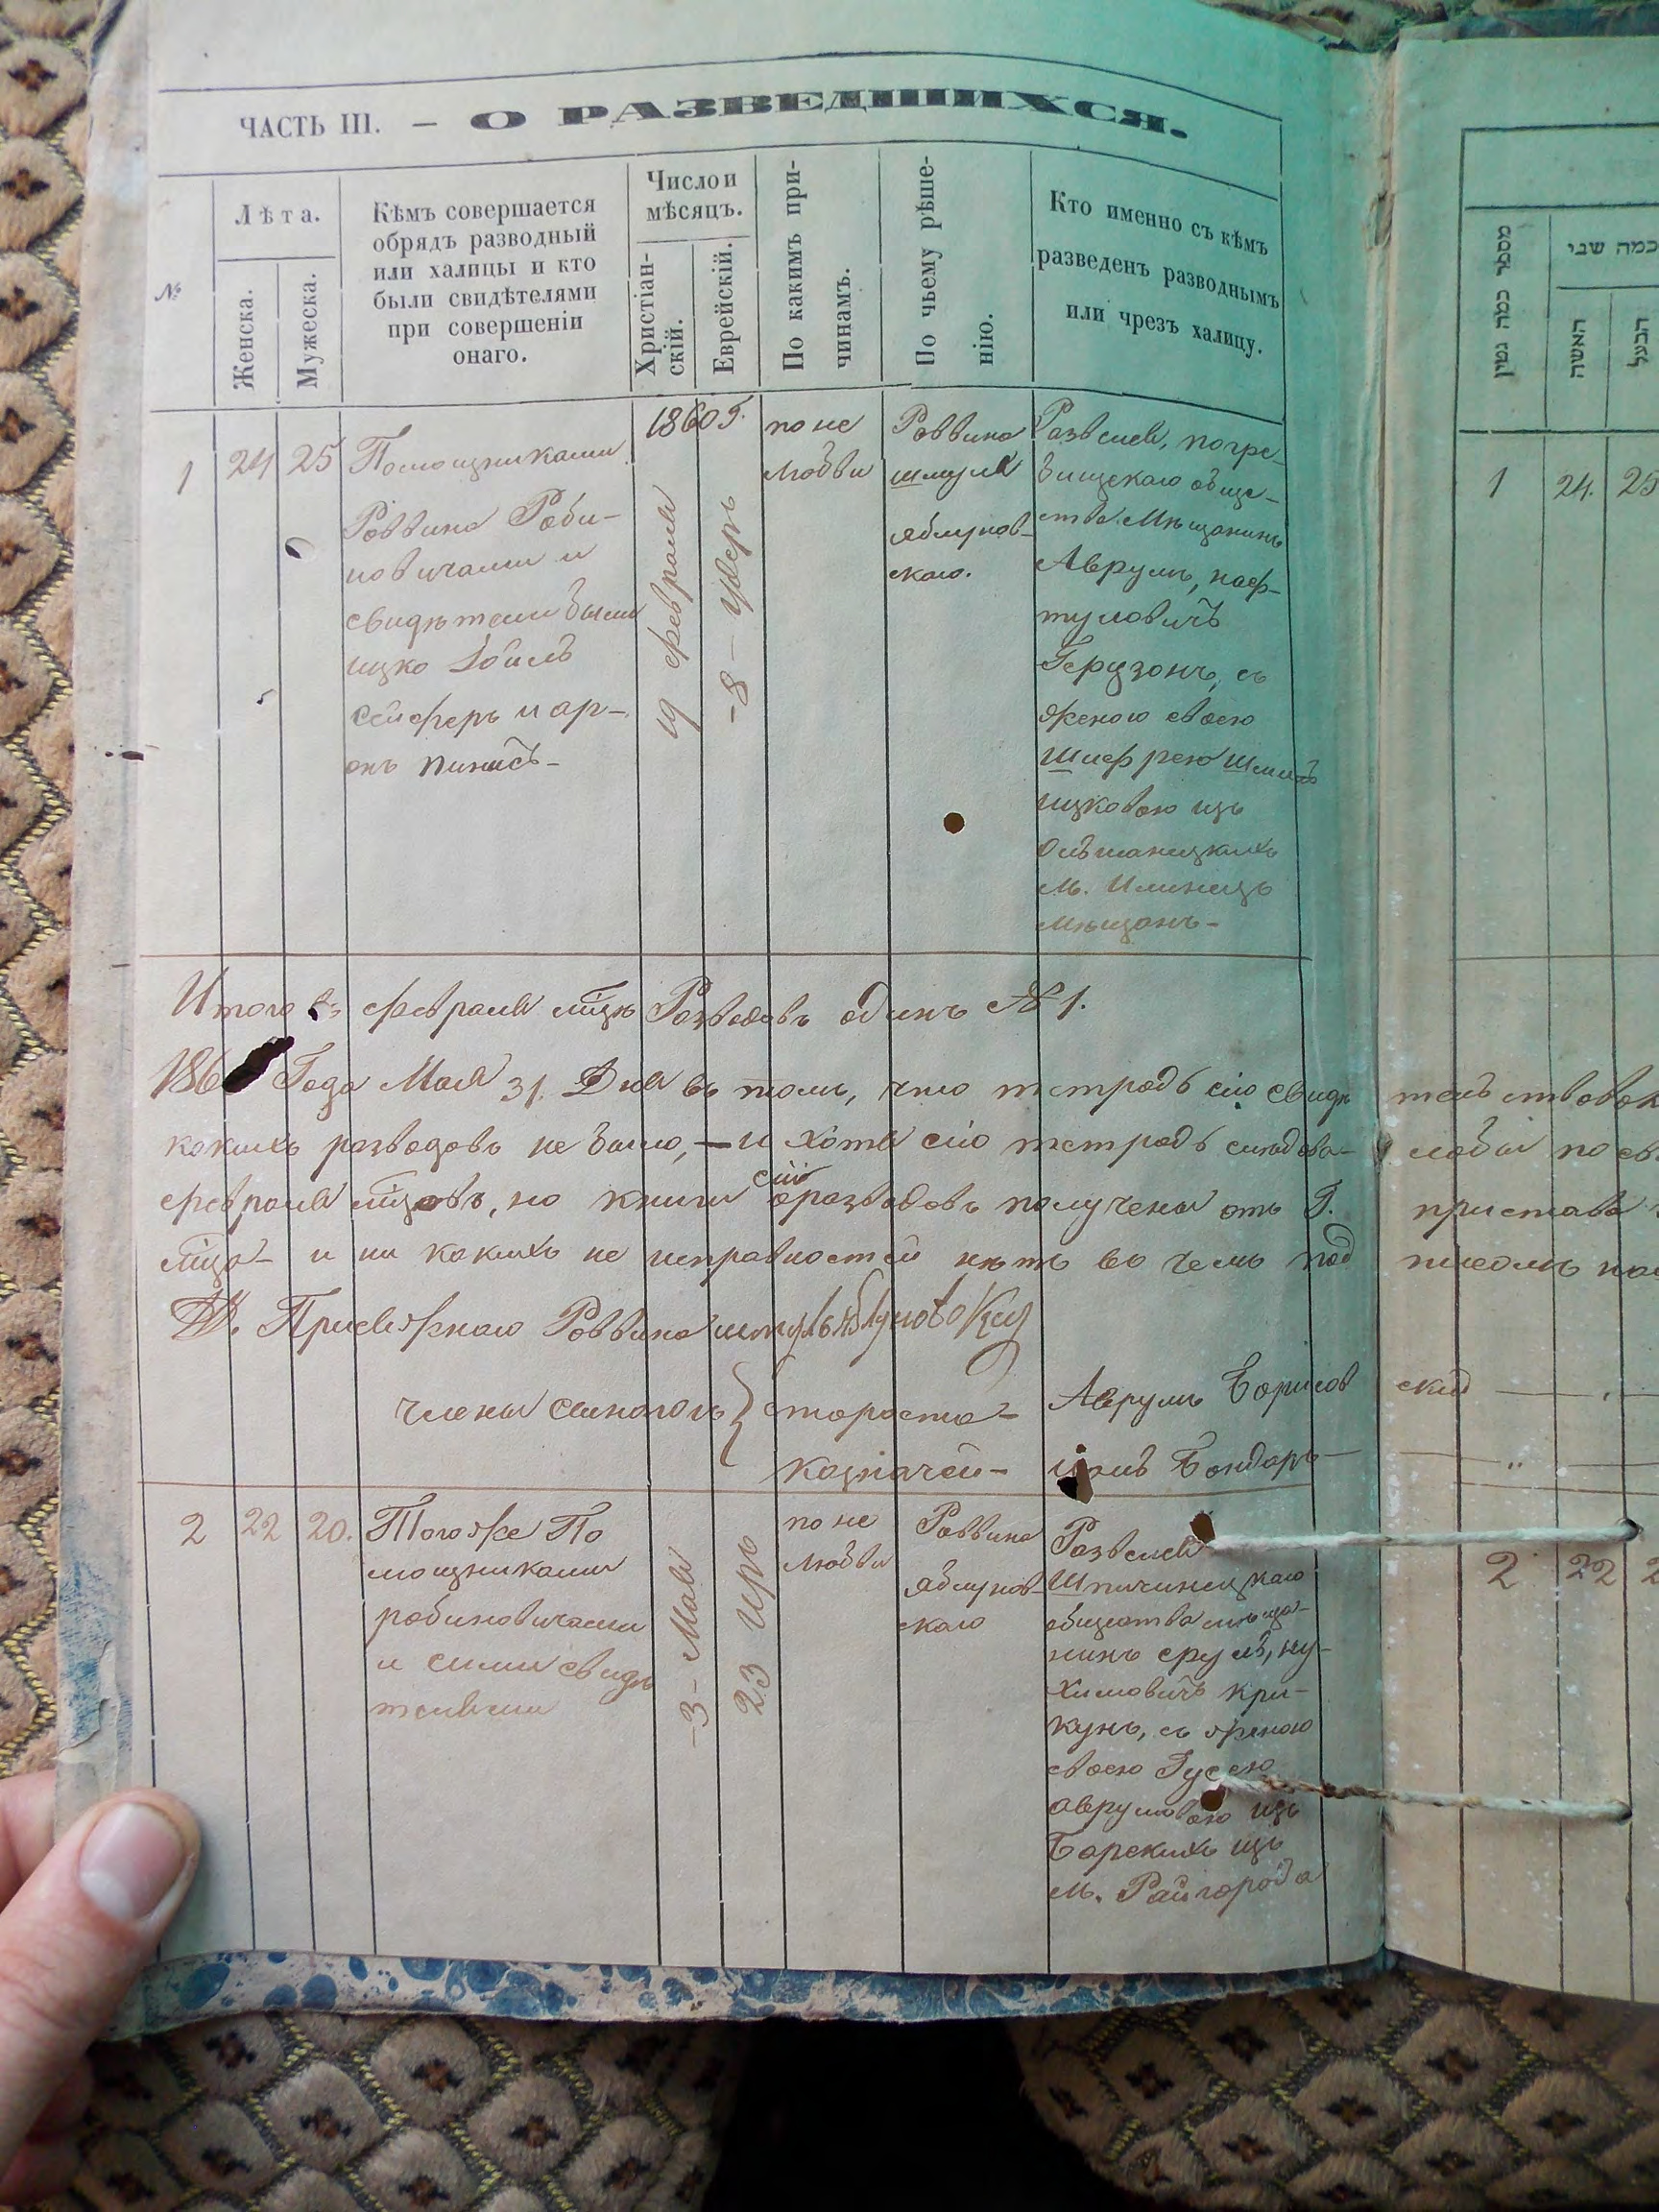 ЧАСТЬ III. — О РАЗВЕДШИХСЯ.
№
Лѣта.
Женска.
Мужеска.
Кѣмъ совершается
обрядъ разводный
или халицы и кто
были свидѣтелями
при совершеніи
онаго.
Число и
мѣсяцъ.
Христіан-
скій.
Еврейскій.
По какимъ при-
чинамъ.
По чьему рѣше-
нію.
Кто именно съ кѣмъ
разведенъ разводнымъ
или чрезъ халицу.
1
24
25
Помощниками
Раввина Раби-
новичами и
свидѣтели были
ицко
Сейферъ и ар-
онъ
1860 г.
19 февраля
-8-
по не
любви
Раввина
шмуля
яблунов-
скаго.
Развелся, погре-
бищскаго обще-
ства Мѣщанинъ
Аврумъ, наф-
туловичъ
Герцзонъ, съ
женою своею
Шифрею
ицковою изъ
Ольшаницкихъ
м. Илинецъ
мѣщанъ-
Итого въ февраля мцѣ Разводовъ одинъ № 1.
186 Года Мая 31. Дня въ томъ, что тетрадь сію свидѣ
какихъ разводовъ не было, — и хотя сію тетрадь слѣдова-
февраля мцовъ, но книги сіи о разводовъ получены отъ Г.
мца- и ни какихъ не исправностей нѣтъ во чемъ под
Присяжнаго Раввина шмуль яблуновский
члены синагоги } староста- Аврумъ Борисов
казначей- Бондарь
2
22
20.
Того же По
мощниками
рабиновичами
и сими свидѣ
телями
-3- Мая
23 иръ
по не
любви
Раввина
яблунов-
скаго
Развелся
Шпичинецкаго
общества мѣща-
нинъ сруль, ну-
химовичъ кри-
кунъ, съ женою
своею Гуссею
аврумовою изъ
Барскихъ изъ
м. Райгорода
מספר כמה גטין
כמה שני
האשה
הבעל
1
24.
25
пристава
скій
2
22